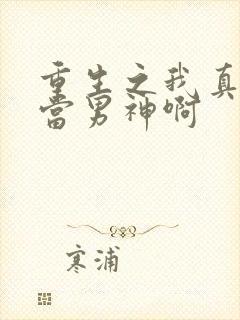 重生之我真
当男神啊
寒浦